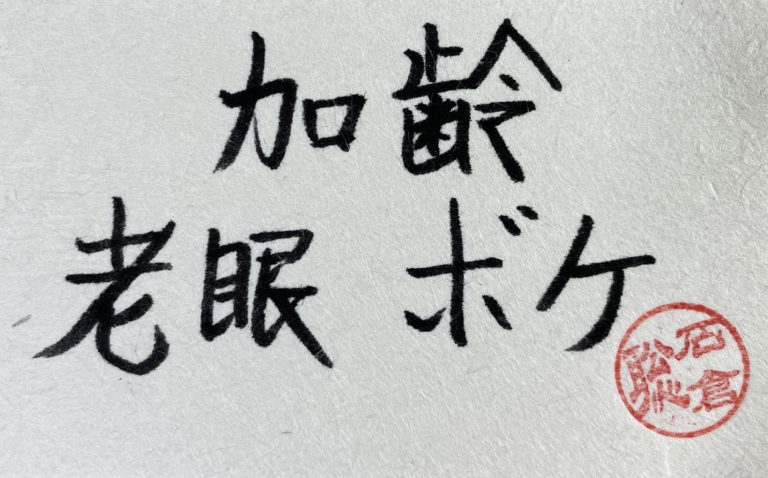 加齢
老眼 ボケ
石倉